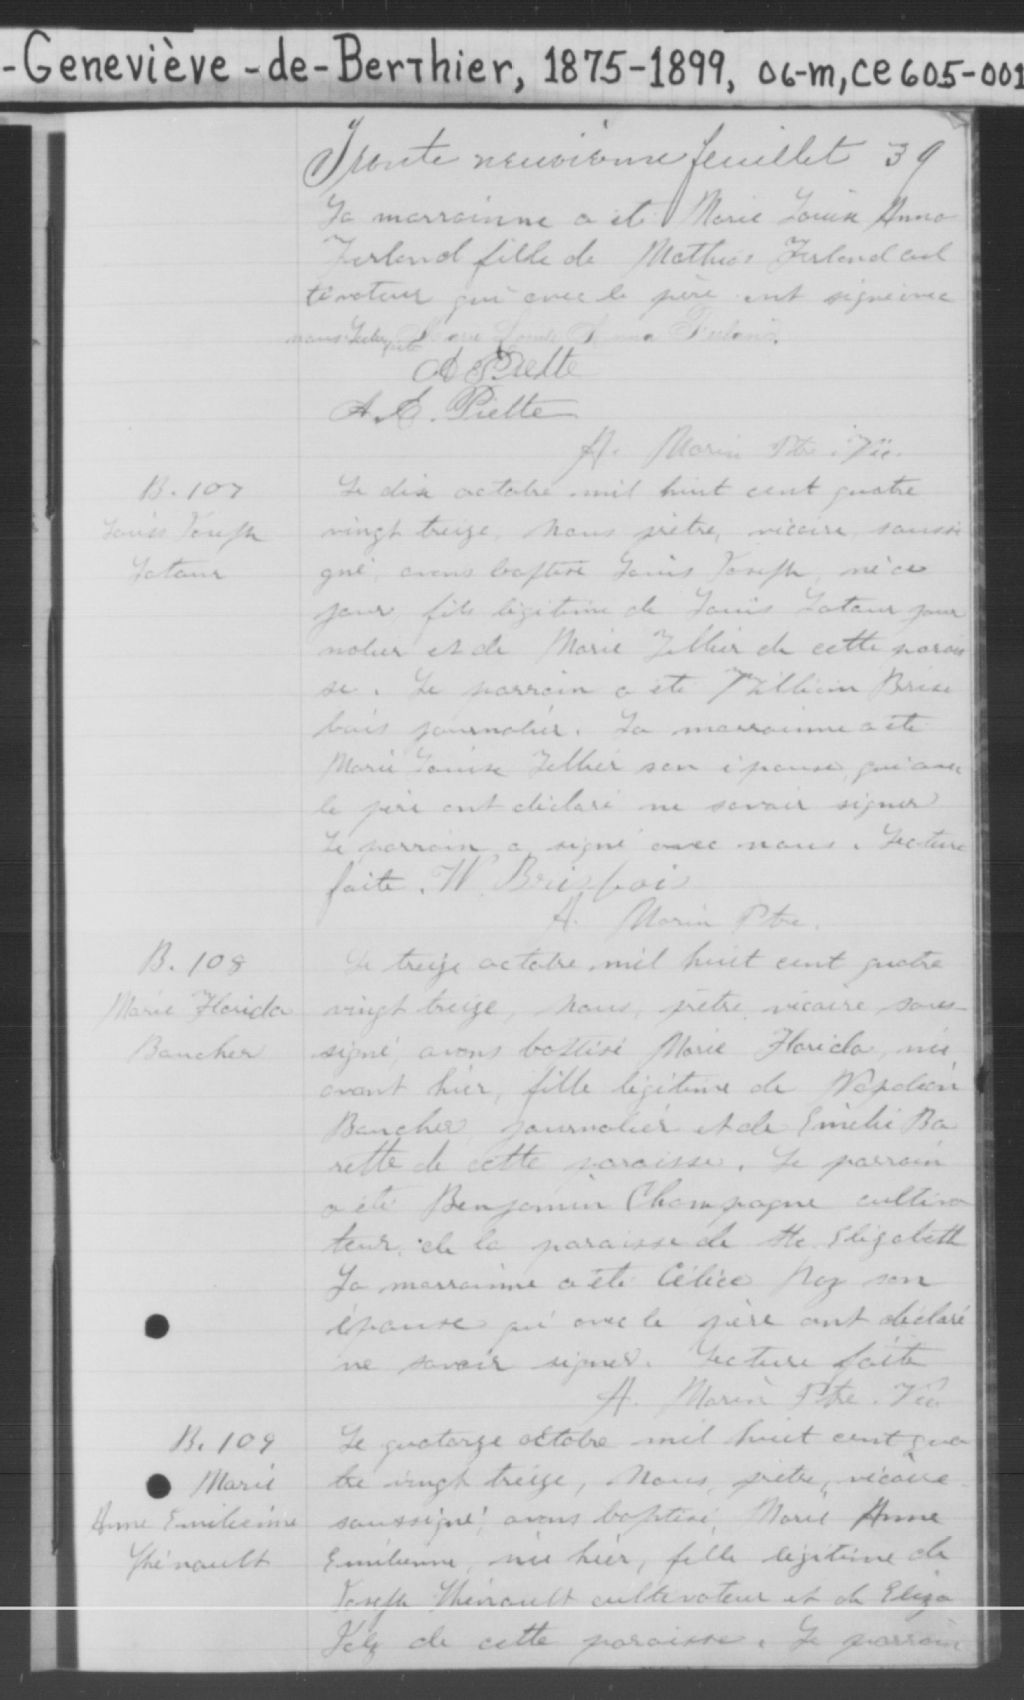 -Geneviève-de-Berthier, 1875-1899, 06-m, ce605-001
Trente neuvième feuillet 39
La marrainne a été Marie Louise Anna
Ferland fille de Mathias Ferland cul
tivateur qui avec le père ont signé avec
nous. Lecture faite Marie Louise Anna Ferland.
A Piette
A. A. Piette
A. Morin Ptre. Vic.
B. 107
Louis Joseph
Latour
Le dix octobre mil huit cent quatre
vingt treize, nous prêtre, vicaire, soussi
gné, avons baptisé Louis Joseph, né ce
jour, fils légitime de Louis Latour jour
nalier et de Marie Tellier de cette parois
se. Le parrain a été William Brise
bois journalier. La marrainne a été
Marie Louise Tellier son épouse, qui avec
le père ont déclaré ne savoir signer
Le parrain a signé avec nous. Lecture
faite. W. Brisbois
A. Morin Ptre.
B. 108
Marie Florida
Boucher
Le treize octobre mil huit cent quatre
vingt treize, nous, prêtre, vicaire sous-
signé, avons battisé Marie Florida, née
avant hier, fille légitime de Napoléon
Boucher, journalier et de Emélie Ba
rette de cette paroisse. Le parrain
a été Benjamin Champagne cultiva
teur, de la paroisse de Ste Elizabeth
La marrainne a été Célice Roy son
épouse qui avec le père ont déclaré
ne savoir signer. Lecture faite
A. Morin Ptre. Vic.
B. 109
Marie
Anne Emilienne
Thénault
Le quatorze octobre mil huit cent qua
tre vingt treize, nous, prêtre, vicaire
soussigné, avons baptisé, Marie Anne
Emilienne, née hier, fille légitime de
Joseph Thénault cultivateur et de Eliza
de cette paroisse. Le parrain